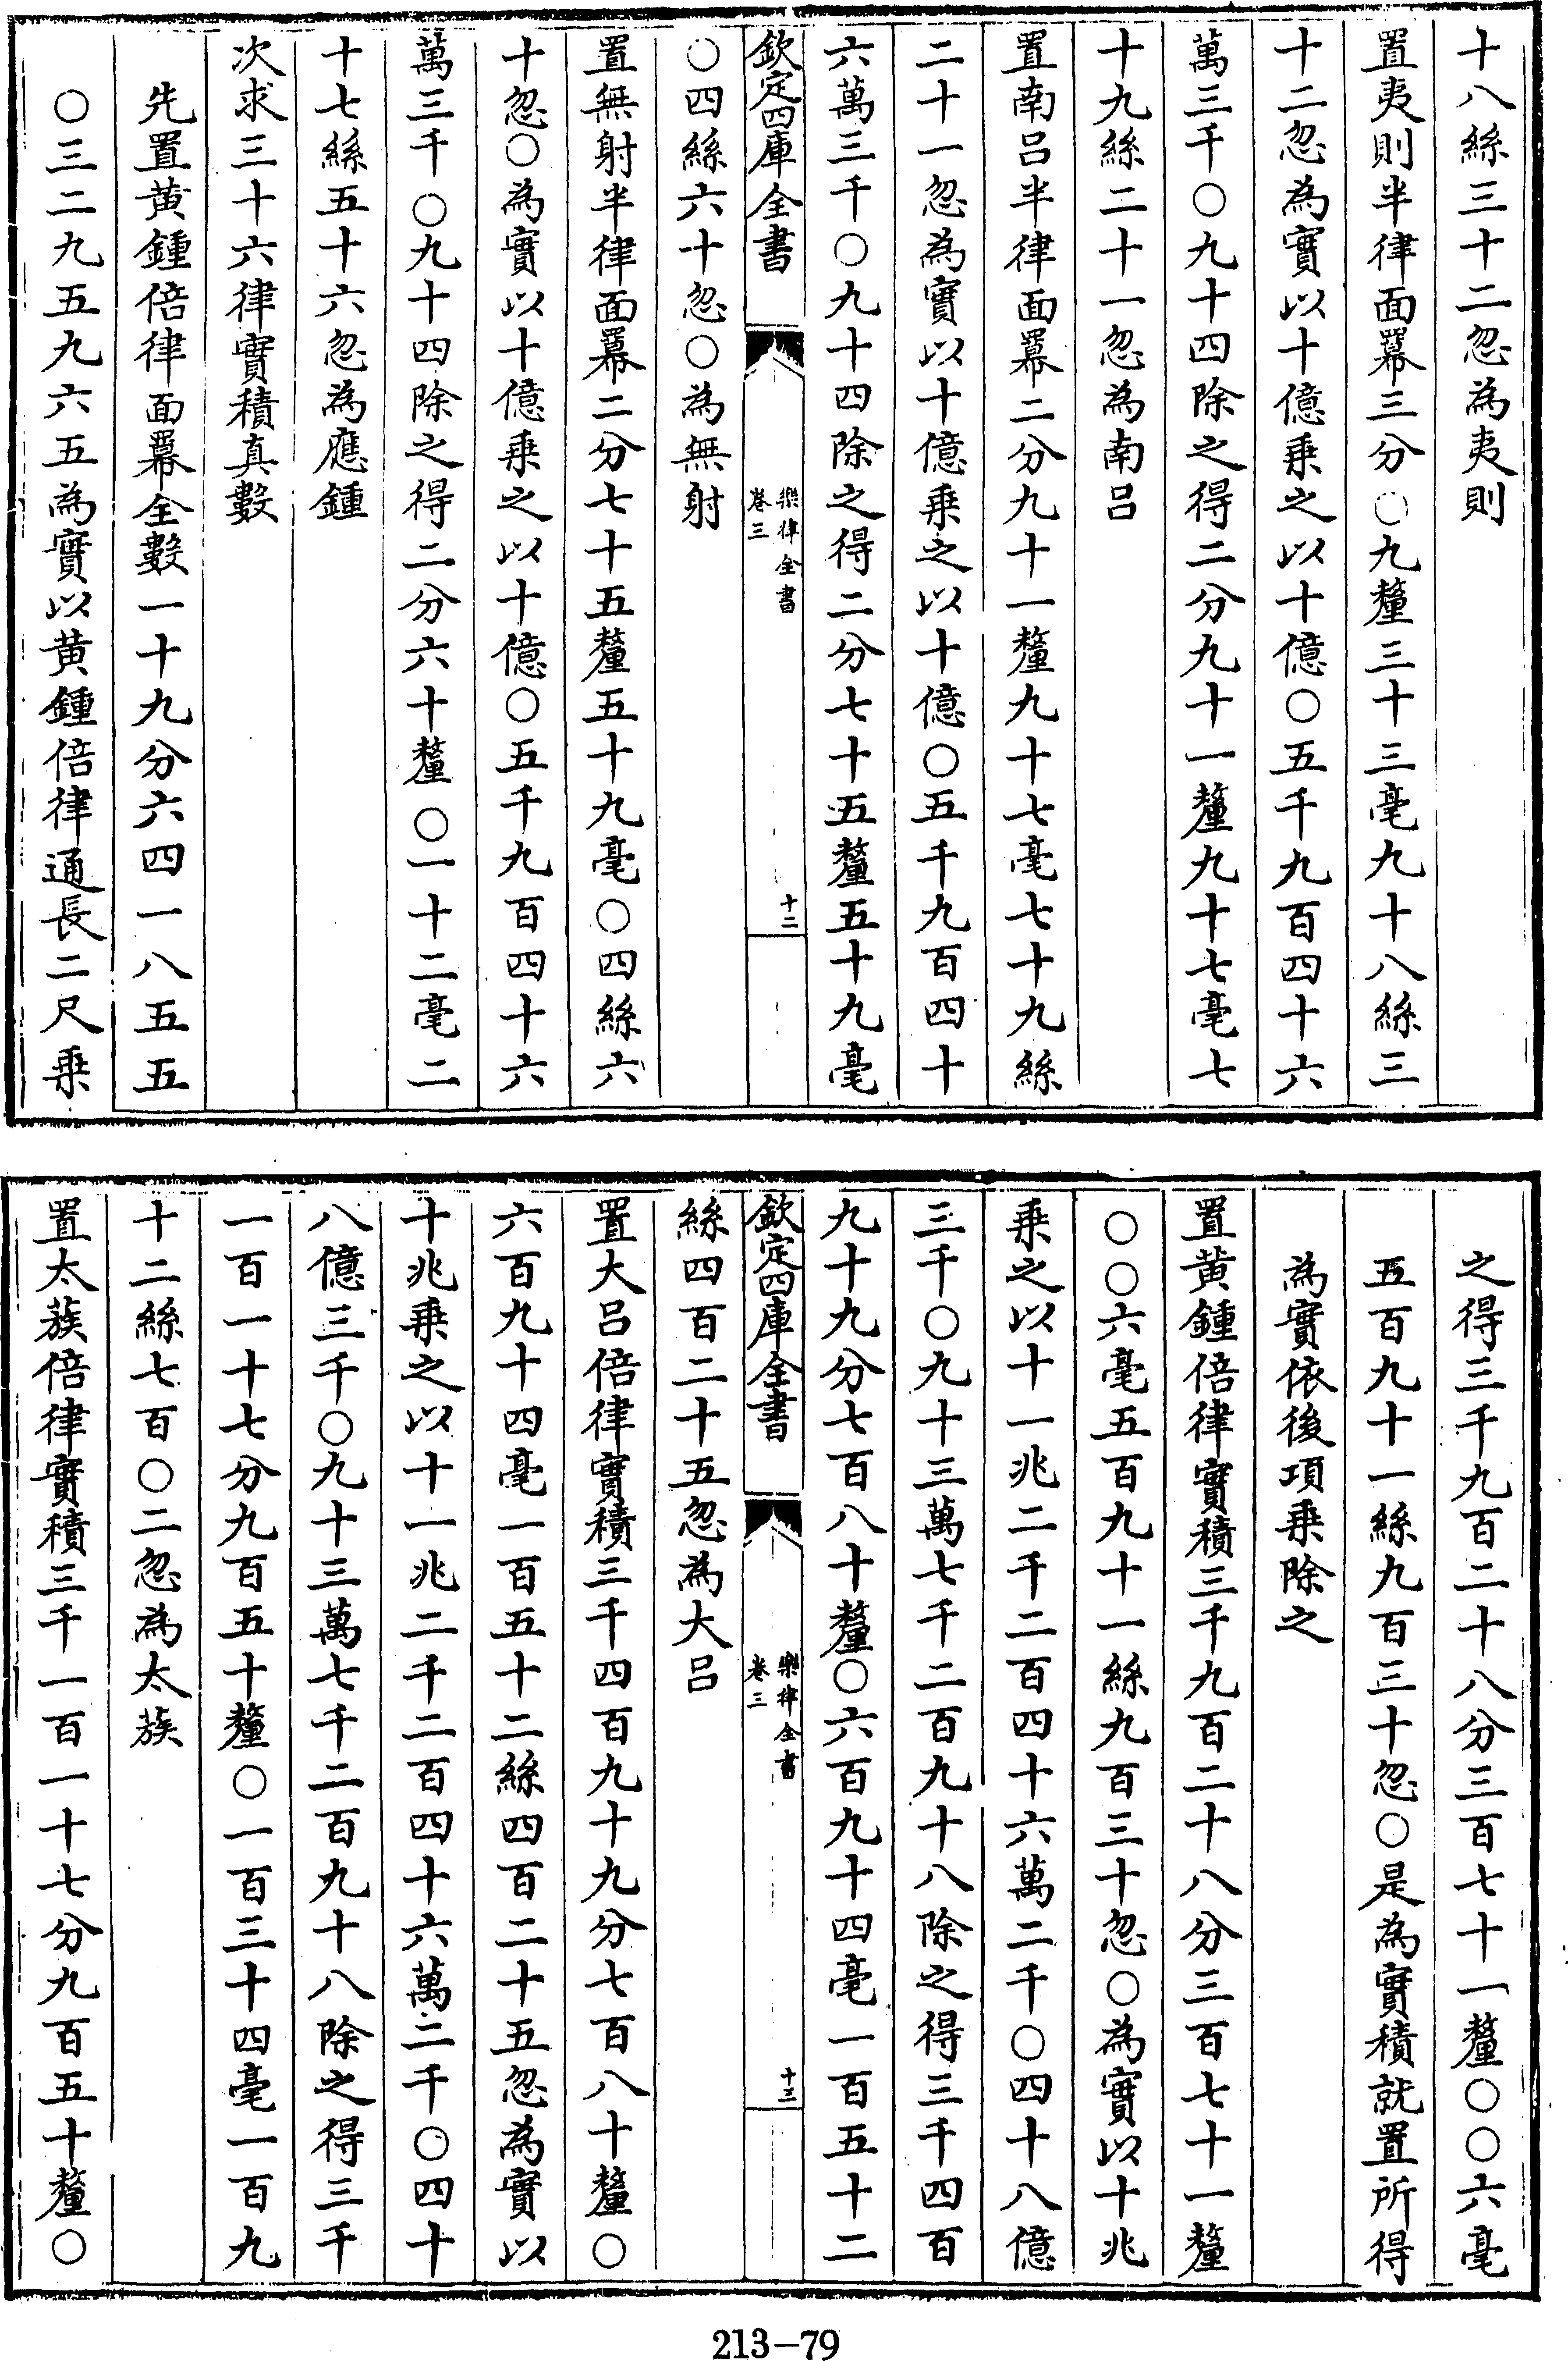 十八絲三十二忽為夷則
置夷則半律面冪三分○九釐三十三毫九十八絲三
十二忽為實以十億乗之以十億○五千九百四十六
萬三千○九十四除之得二分九十一釐九十七毫七
十九絲二十一忽為南呂
置南呂半律面冪二分九十一釐九十七毫七十九絲
二十一忽為實以十億乗之以十億○五千九百四十
六萬三千○九十四除之得二分七十五釐五十九毫
欽定四庫全書
樂律全書
卷三
十二
○四絲六十忽○為無射
置無射半律面冪二分七十五釐五十九毫○四絲六
十忽○為實以十億乗之以十億○五千九百四十六
萬三千○九十四除之得二分六十釐○一十二毫二
十七絲五十六忽為應鍾
次求三十六律實積真數
先置黄鍾倍律面冪全數一十九分六四一八五五
○三二九五九六五為實以黄鍾倍律通長二尺乗
之得三千九百二十八分三百七十一釐○○六毫
五百九十一絲九百三十忽○是為實積就置所得
為實依後項乗除之
置黄鍾倍律實積三千九百二十八分三百七十一釐
○○六毫五百九十一絲九百三十忽○為實以十兆
乗之以十一兆二千二百四十六萬二千○四十八億
三千○九十三萬七千二百九十八除之得三千四百
九十九分七百八十釐○六百九十四毫一百五十二
欽定四庫全書
樂律全書
卷三
十三
絲四百二十五忽為大呂
置大呂倍律實積三千四百九十九分七百八十釐○
六百九十四毫一百五十二絲四百二十五忽為實以
十兆乗之以十一兆二千二百四十六萬二千○四十
八億三千○九十三萬七千二百九十八除之得三千
一百一十七分九百五十釐○一百三十四毫一百九
十二絲七百○二忽為太蔟
置太蔟倍律實積三千一百一十七分九百五十釐○
213-79